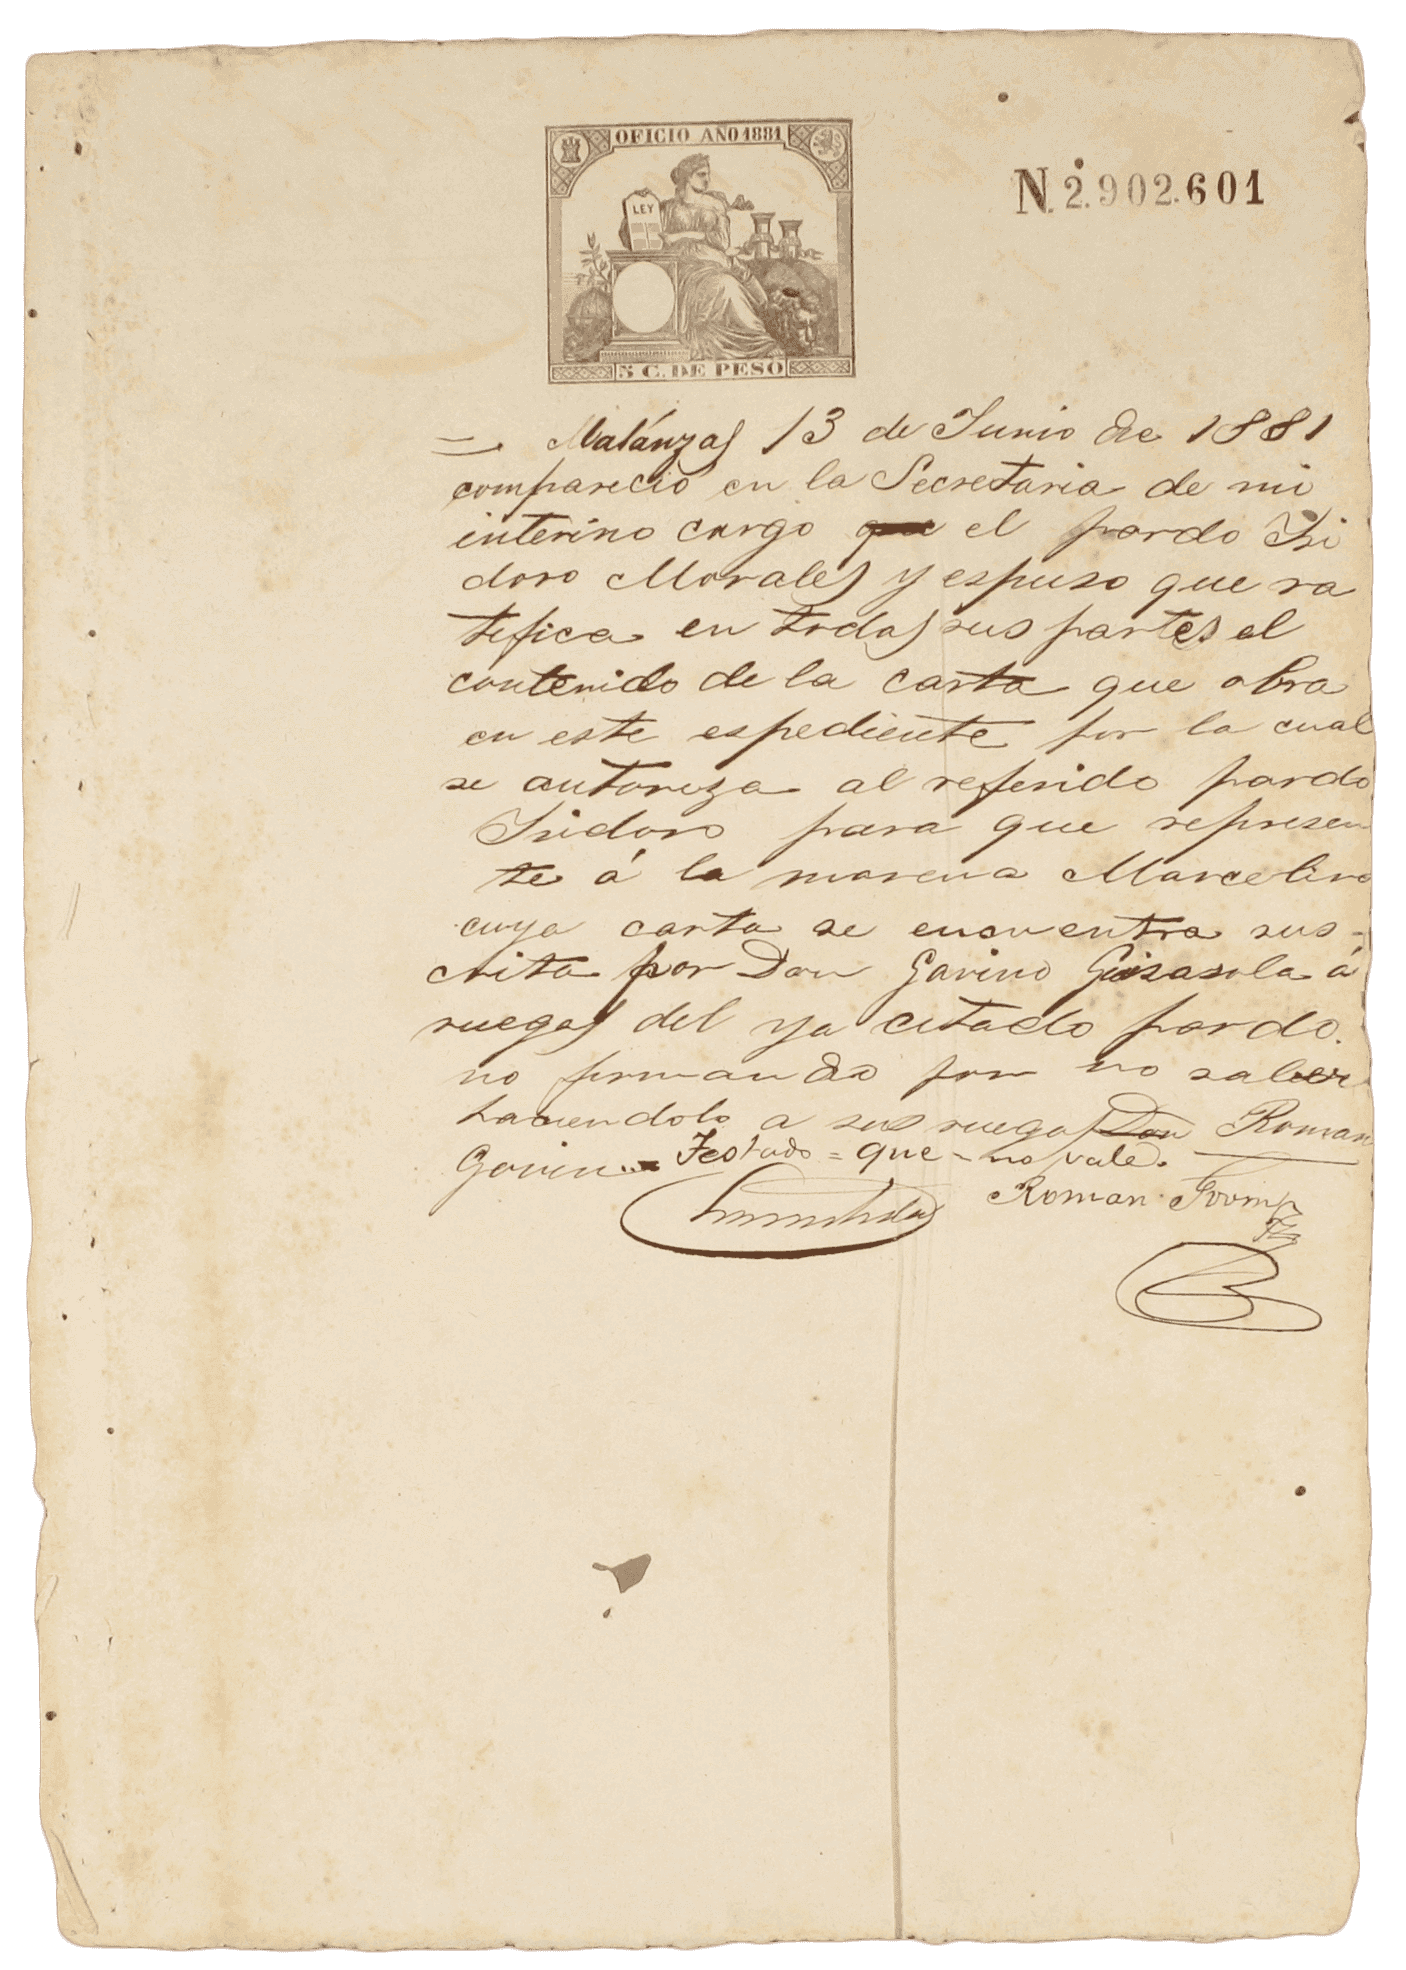 OFICIO AÑO 1881
LEY
5 C. DE PESO
N. 2.902.601
Matánzas 13 de Junio de 1881
compareció en la Secretaria de mi
interino cargo que el pardo Isi
doro Morales y espuso que ra
tifica en todas sus partes el
contenido de la carta que obra
en este espediente por la cual
se autoriza al referido pardo
Isidoro para que represen
te á la morena Marcelina
cuya carta se encuentra sus-
crita por Don Gavino Gisasola á
ruegos del ya citado pardo.
no firmando por no saber
haciendolo a sus ruegos Don Roman
Govin Testado = que - no vale.
Roman